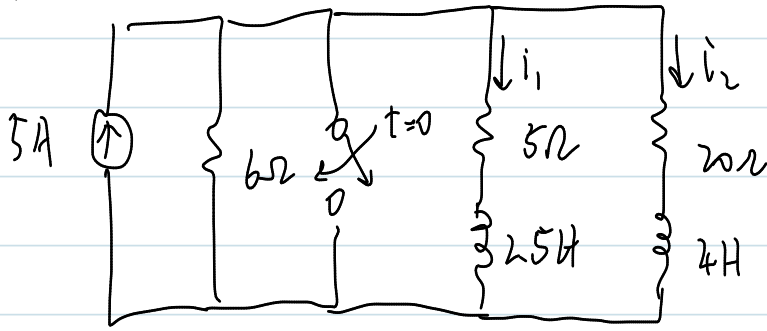 5A
6Ω
t=0
i₁
5Ω
2.5H
i₂
20Ω
4H